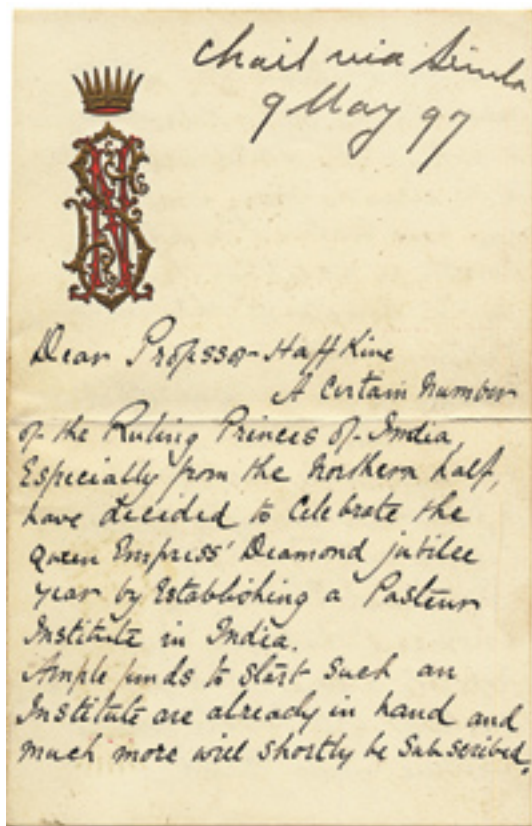 Chail via Simla
9 May 97
Dear Professor Haffkine
A Certain Number
of the Ruling Princes of India,
Especially from the Northern half,
have decided to Celebrate the
Queen Empress' Diamond jubilee
year by Establishing a Pasteur
Institute in India.
Ample funds to start such an
Institute are already in hand and
much more will shortly be Subscribed,